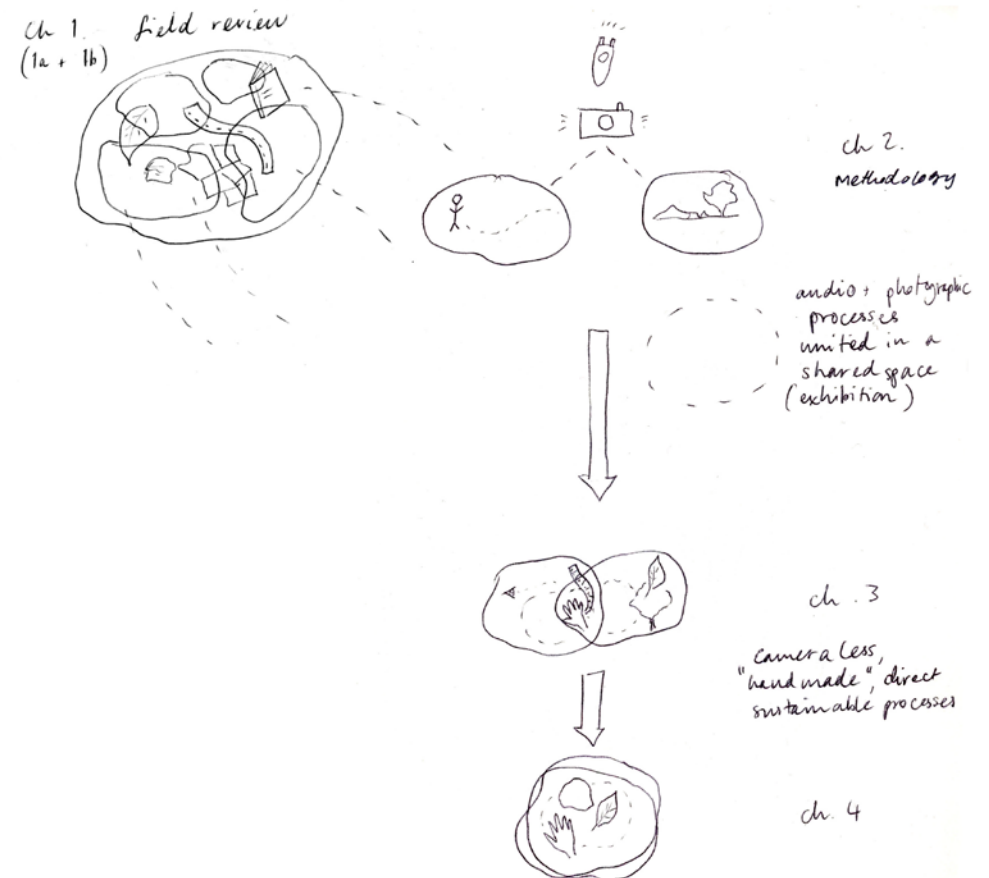 Ch 1. field review
(1a + 1b)
ch 2.
methodology
audio + photographic
processes
united in a
shared space
(exhibition)
ch. 3
camera less,
"hand made", direct
sustainable processes
ch. 4